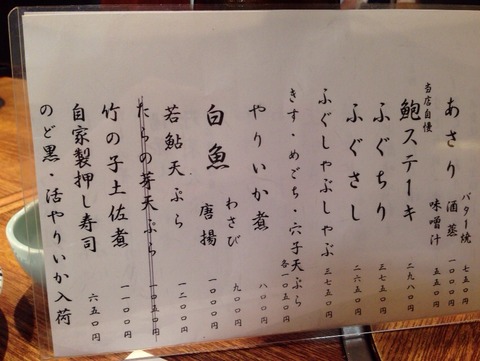 あさり バター焼 七五〇円
酒蒸 一〇〇〇円
味噌汁 五五〇円
当店自慢
鮑ステーキ 二九八〇円
ふぐちり 三七五〇円
ふぐさし 二六五〇円
ふぐしゃぶしゃぶ 三七五〇円
きす・めごち・穴子天ぷら 各一〇五〇円
やりいか煮 八〇〇円
白魚 わさび 九〇〇円
唐揚 一〇〇〇円
若鮎天ぷら 一二〇〇円
たらの芽天ぷら 一〇五〇円
竹の子土佐煮 一一〇〇円
自家製押し寿司 六五〇円
のど黒・活やりいか入荷